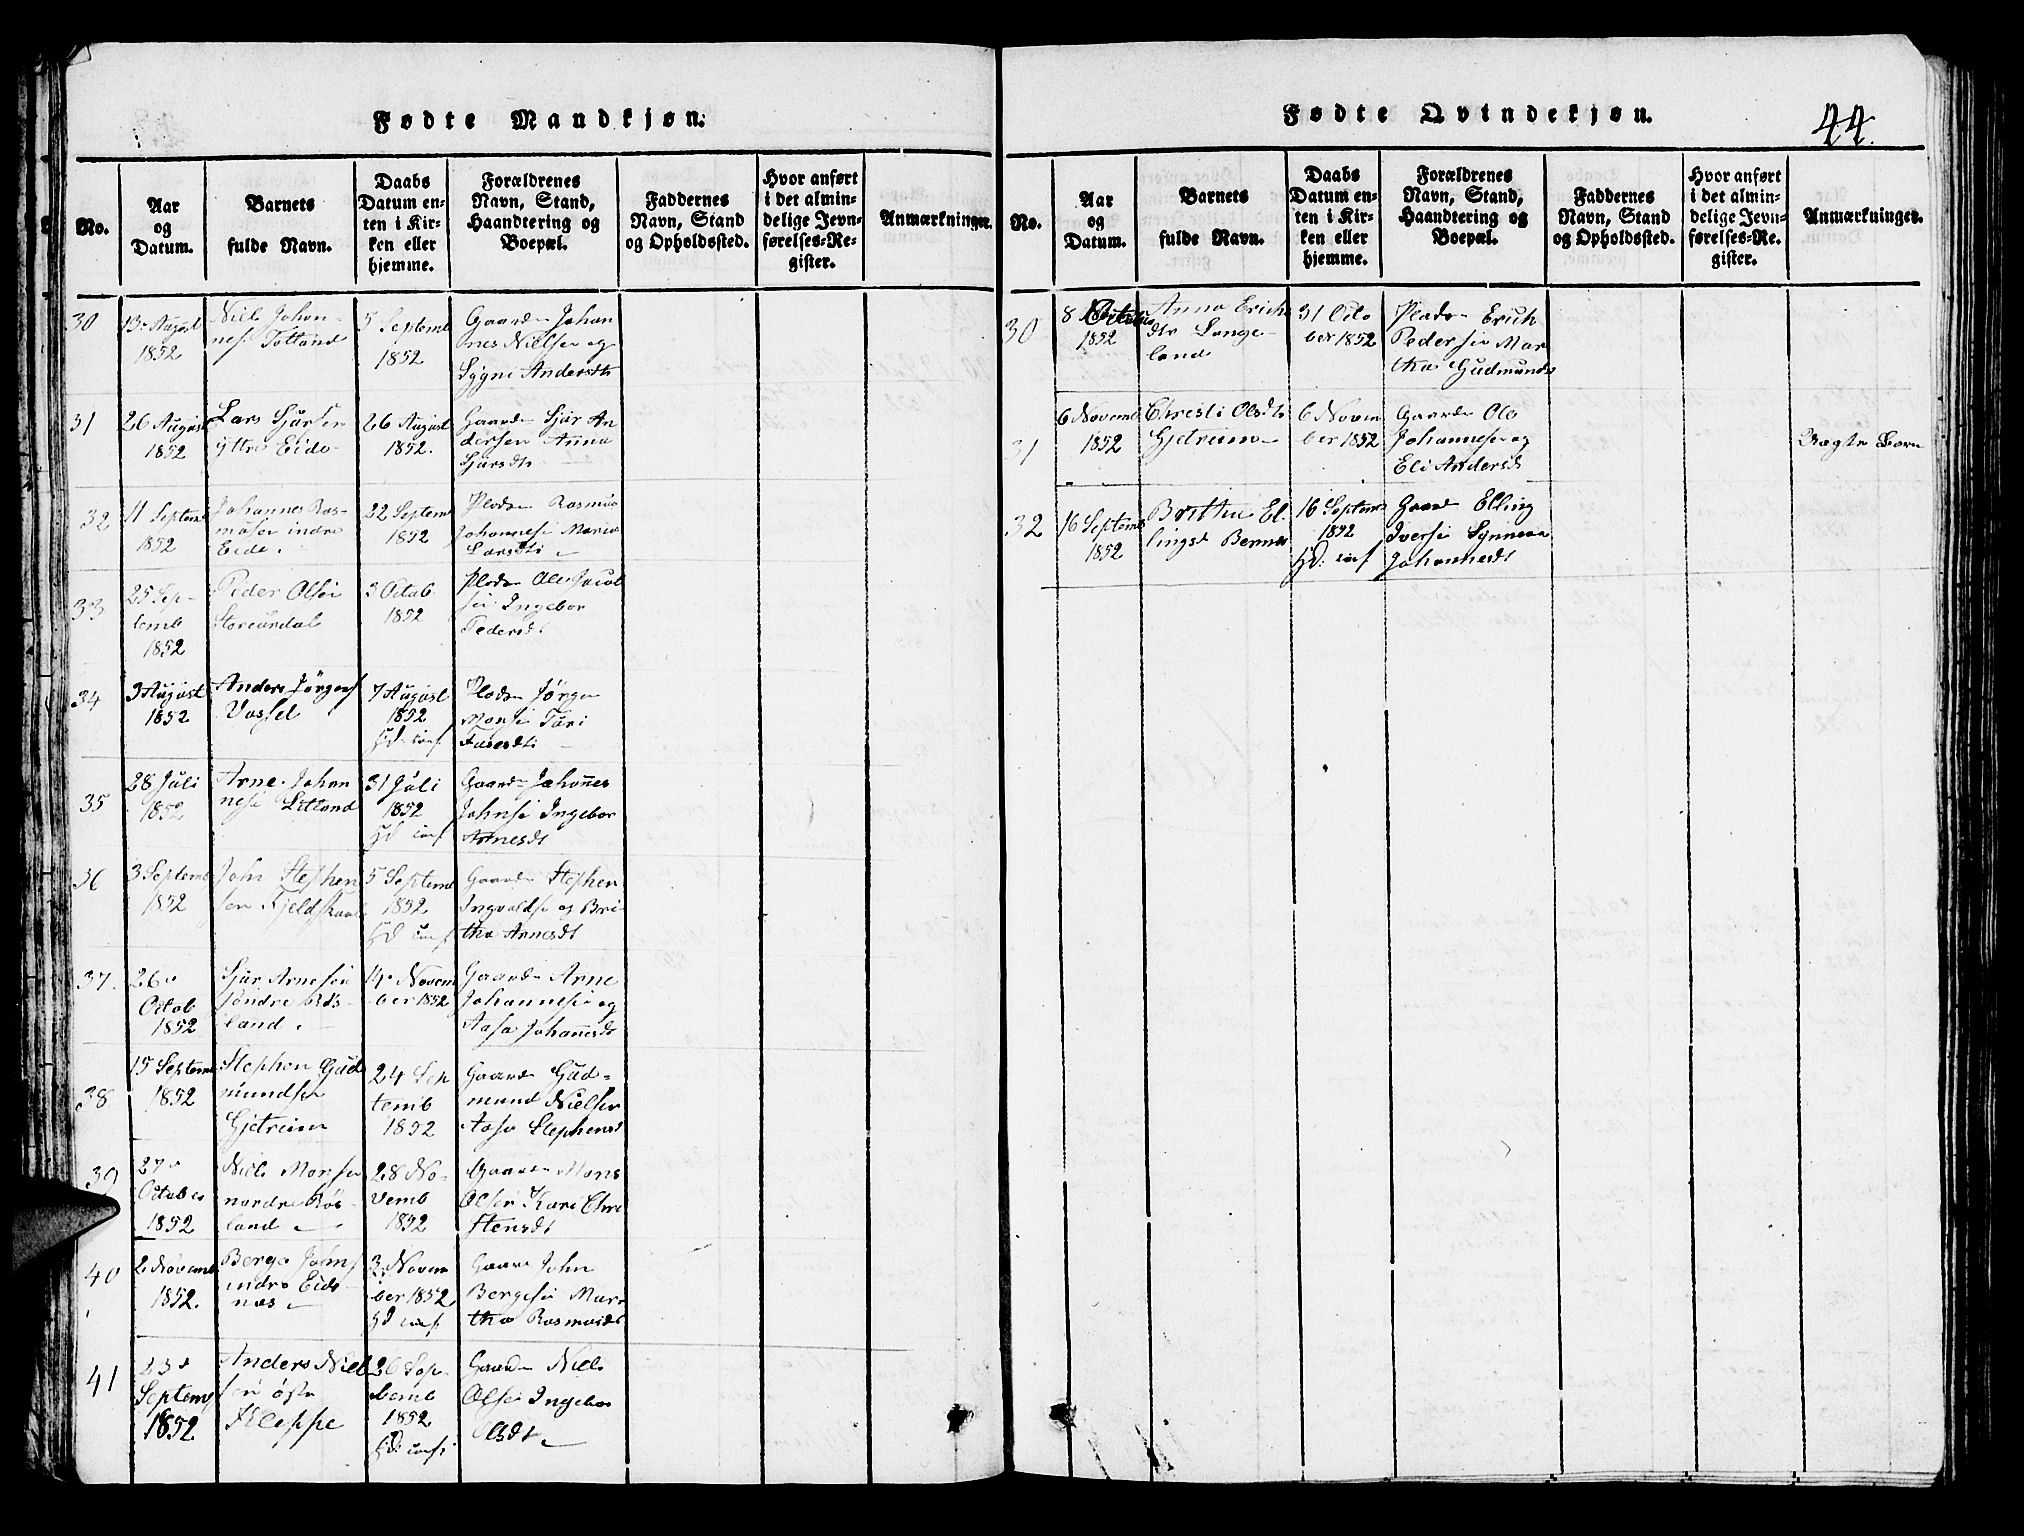 Fødte Mandkjøn.
No.
Aar
og
Datum.
Barnets
fulde Navn.
Daabs
Datum en-
ten i Kir-
ken eller
hjemme.
Forældrenes
Navn, Stand,
Haandtering og
Boepæl.
Faddernes
Navn, Stand
og Opholdssted.
Hvor anført
i det almin-
delige Jevn-
førelses-Re-
gister.
Anmærkninger.
30
13 August
1852
Niels Johan-
nes. Totland
5 Septemb
1852
Gaardm Johan
nes Nielsen og
Sygni Andersdt
31
26 August
1852
Lars Sjursen
yttre Eide
26 August
1852.
Gaardm Sjur An
dersen Anna
Sjursdt
32
11 Septemb
1852
Johannes Ras-
musen indre
Eide.
22 Septemb
1852
Pladsm Rasmus
Johannesen Maria
Larsdt
33
25 Sep-
temb
1852
Peder Olsen
Storeurdal
3 Octob
1852
Pladsm Ole Jacob
sen Ingebor
Pedersdt
34
3 August
1852
Anders Jörgens
Vassel
7 August
1852
Hd: conf
Pladsm Jörgen
Monsen Turi
35
28 Juli
1852
Arne Johan
nesen Litland
31 Juli
1852
Hd conf
Gaardm Johannes
Johnsen Ingebor
Arnesdt
36
3 Septemb
1852
John Stephen
sen Fjeldskaal
5 Septemb
1852
Hd conf
Gaardm Stephen
Ingvaldsen og Bri-
tha Arnesdt
37.
26
Octob
1852
Sjur Arnesen
söndre Rös-
land.
14 Novem
ber 1852
Gaardm Arne
Johannesen og
Aasa Johannesdt
38
15 Septemb
1852
Stephen Gud
mundsen
Gjetreim
24 Sep
temb
1852
Gaardm Gud-
mund Nielsen
Aasa Stephensd
39
27
October
1852
Niels Monsen
nordre Rös-
land
28 No-
vemb
1852
Gaardm Mons
Olsen Kari Chri
stensdt
40
2 Novemb
1852.
Berge Johns
indre Eide-
næs
3 Novem
ber 1852
Hd conf
Gaardm John
Bergesen Mar
tha Rasmusdt
41
23
Septemb
1852
Anders Niel
sen östre
Kleppe
26 Sep-
temb
1852
Hd: conf:
Gaardm Niels
Olsen Ingebor
Olsdt
Fødte Qvindekjøn.
44.
No.
Aar
og
Datum.
Barnets
fulde Navn.
Daabs
Datum en-
ten i Kir-
ken eller
hjemme.
Forældrenes
Navn, Stand,
Haandtering og
Boepæl.
Faddernes
Navn, Stand
og Opholdssted.
Hvor anført
i det almin-
delige Jevn-
førelses-Re.
gister.
Anmærkninger.
30
8 October
1852
Anna Erichs
dtr Lange-
land
31 Octo
ber 1852
Pladsm Erich
Pedersen Mar
tha Gudmunds
31
6 Novemb
1852
Christi Olsdt
Gjetreim
6 Novem
ber 1852
Gaardm Ole
Johannesen og
Eli Andersd
Ægte Barn
32
16 Septemb
1852
Britha El-
lingsd Bernes
16 Septemb
1852
Hd: conf
Gaard Elling
Iversen Synneva
Johannesdt